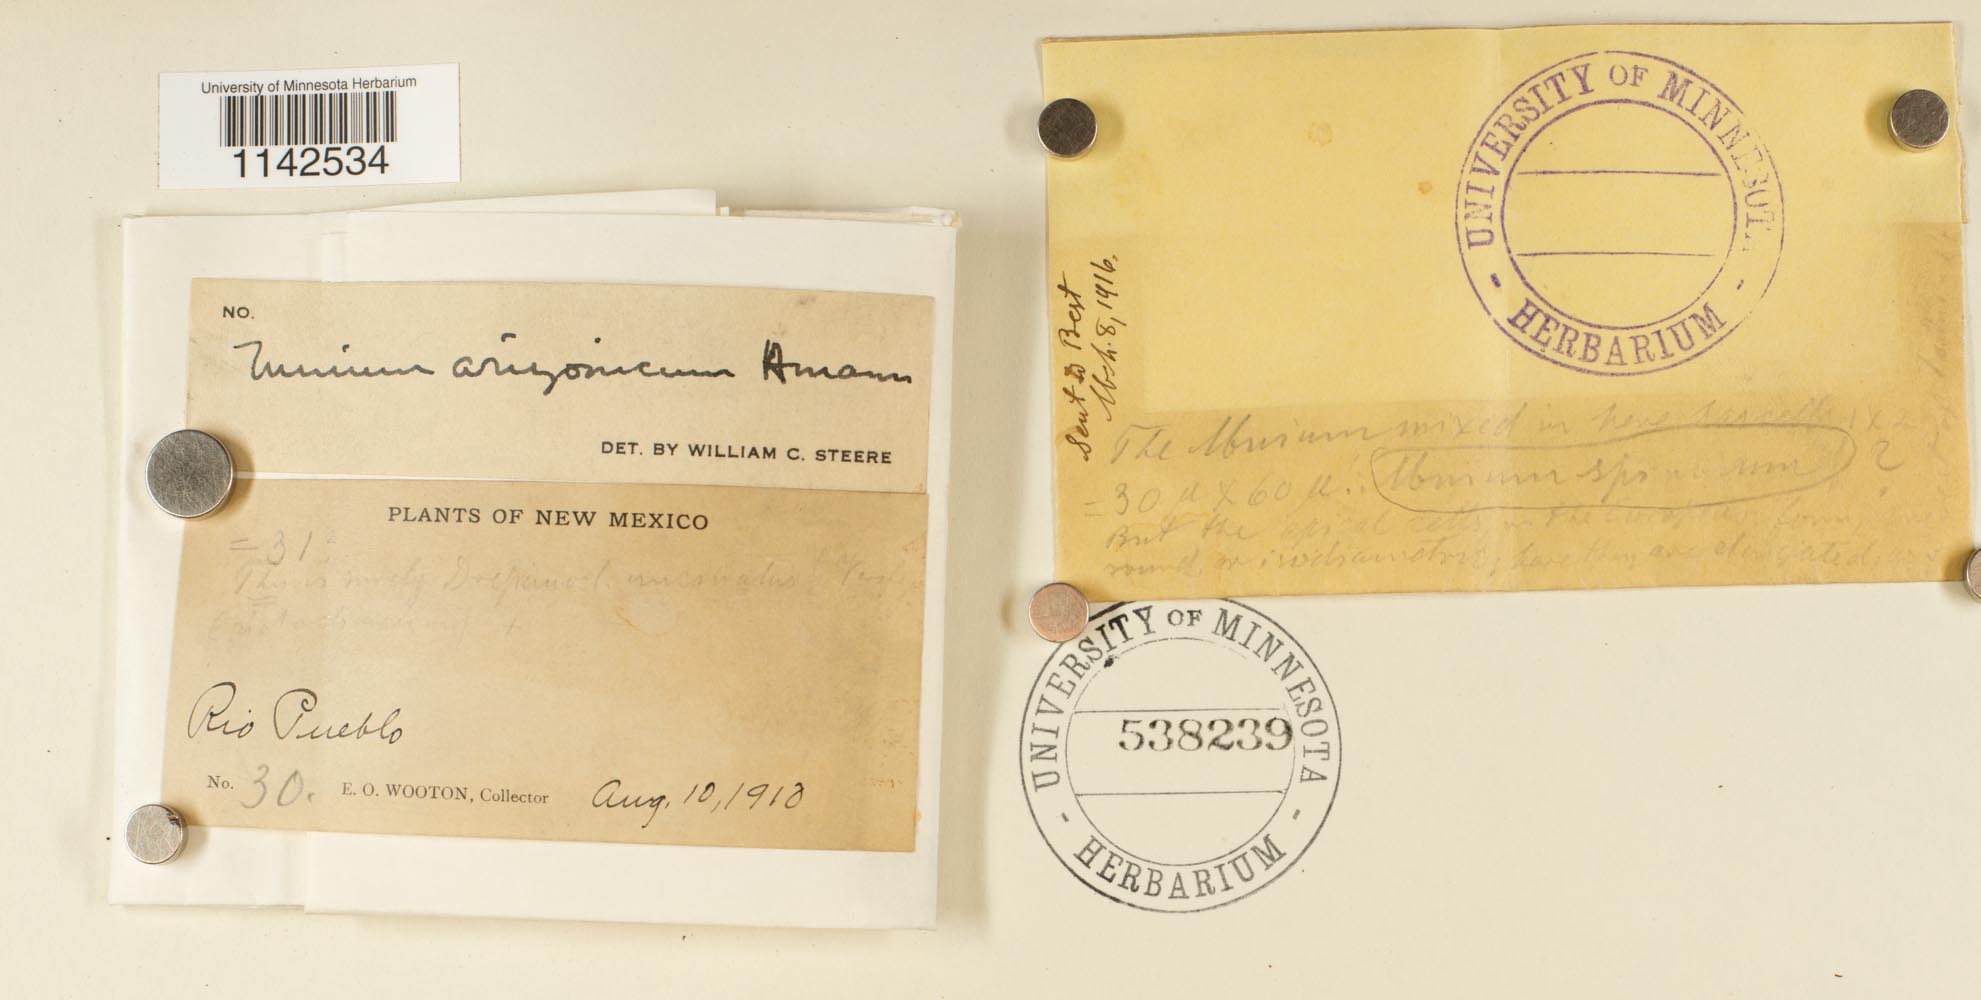 University of Minnesota Herbarium
1142534
NO.
Mnium arizonicum Amann
DET. BY WILLIAM C. STEERE
PLANTS OF NEW MEXICO
= 31
This is mostly
Rio Pueblo
No. 30. E. O. WOOTON, Collector Aug. 10, 1910
UNIVERSITY OF MINNESOT
- HERBARIUM -
Sent to Best
Mch. 8, 1916.
The Mnium mixed in here 1 x 2
= 30 µ x 60 µ Mnium spinosum ?
But the apical cells in the form,
round or isodiametric, here they are elongated
UNIVERSITY OF MINNESOTA
538239
- HERBARIUM -